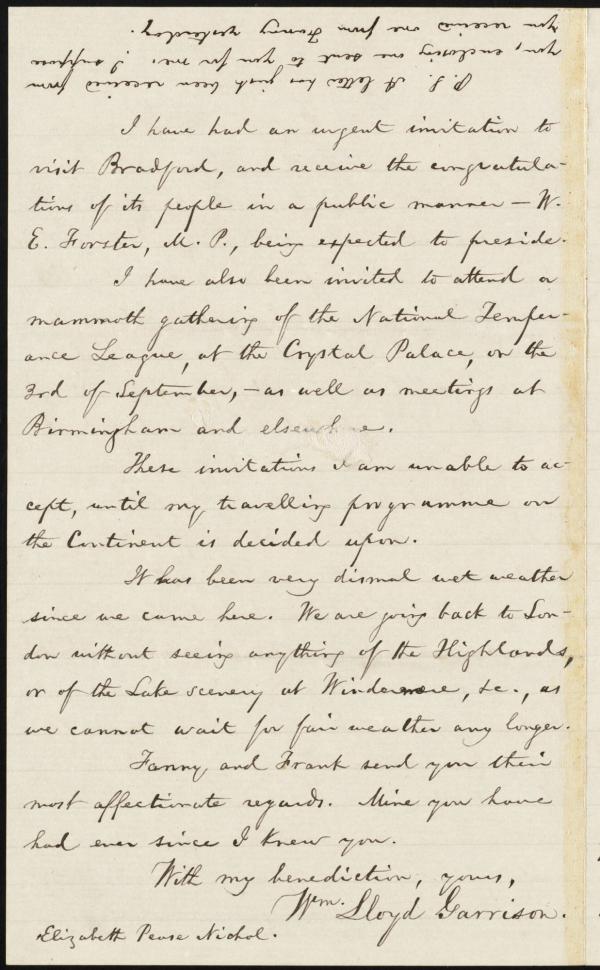 P. S. A letter has just been received from
you, enclosing one sent to you for me. I suppose
you received one from Fanny yesterday.
I have had an urgent invitation to
visit Bradford, and receive the congratula-
tions of its people in a public manner — W.
E. Forster, M. P., being expected to preside.
I have also been invited to attend a
mammoth gathering of the National Temper-
ance League, at the Crystal Palace, on the
3rd of September, — as well as meetings at
Birmingham and elsewhere.
These invitations I am unable to ac-
cept, until my travelling programme on
the Continent is decided upon.
It has been very dismal wet weather
since we came here. We are going back to Lon-
don without seeing anything of the Highlands,
or of the Lake scenery at Windermere, &c., as
we cannot wait for fair weather any longer.
Fanny and Frank send you their
most affectionate regards. Mine you have
had ever since I knew you.
With my benediction, yours,
Wm. Lloyd Garrison.
Elizabeth Pease Nichol.